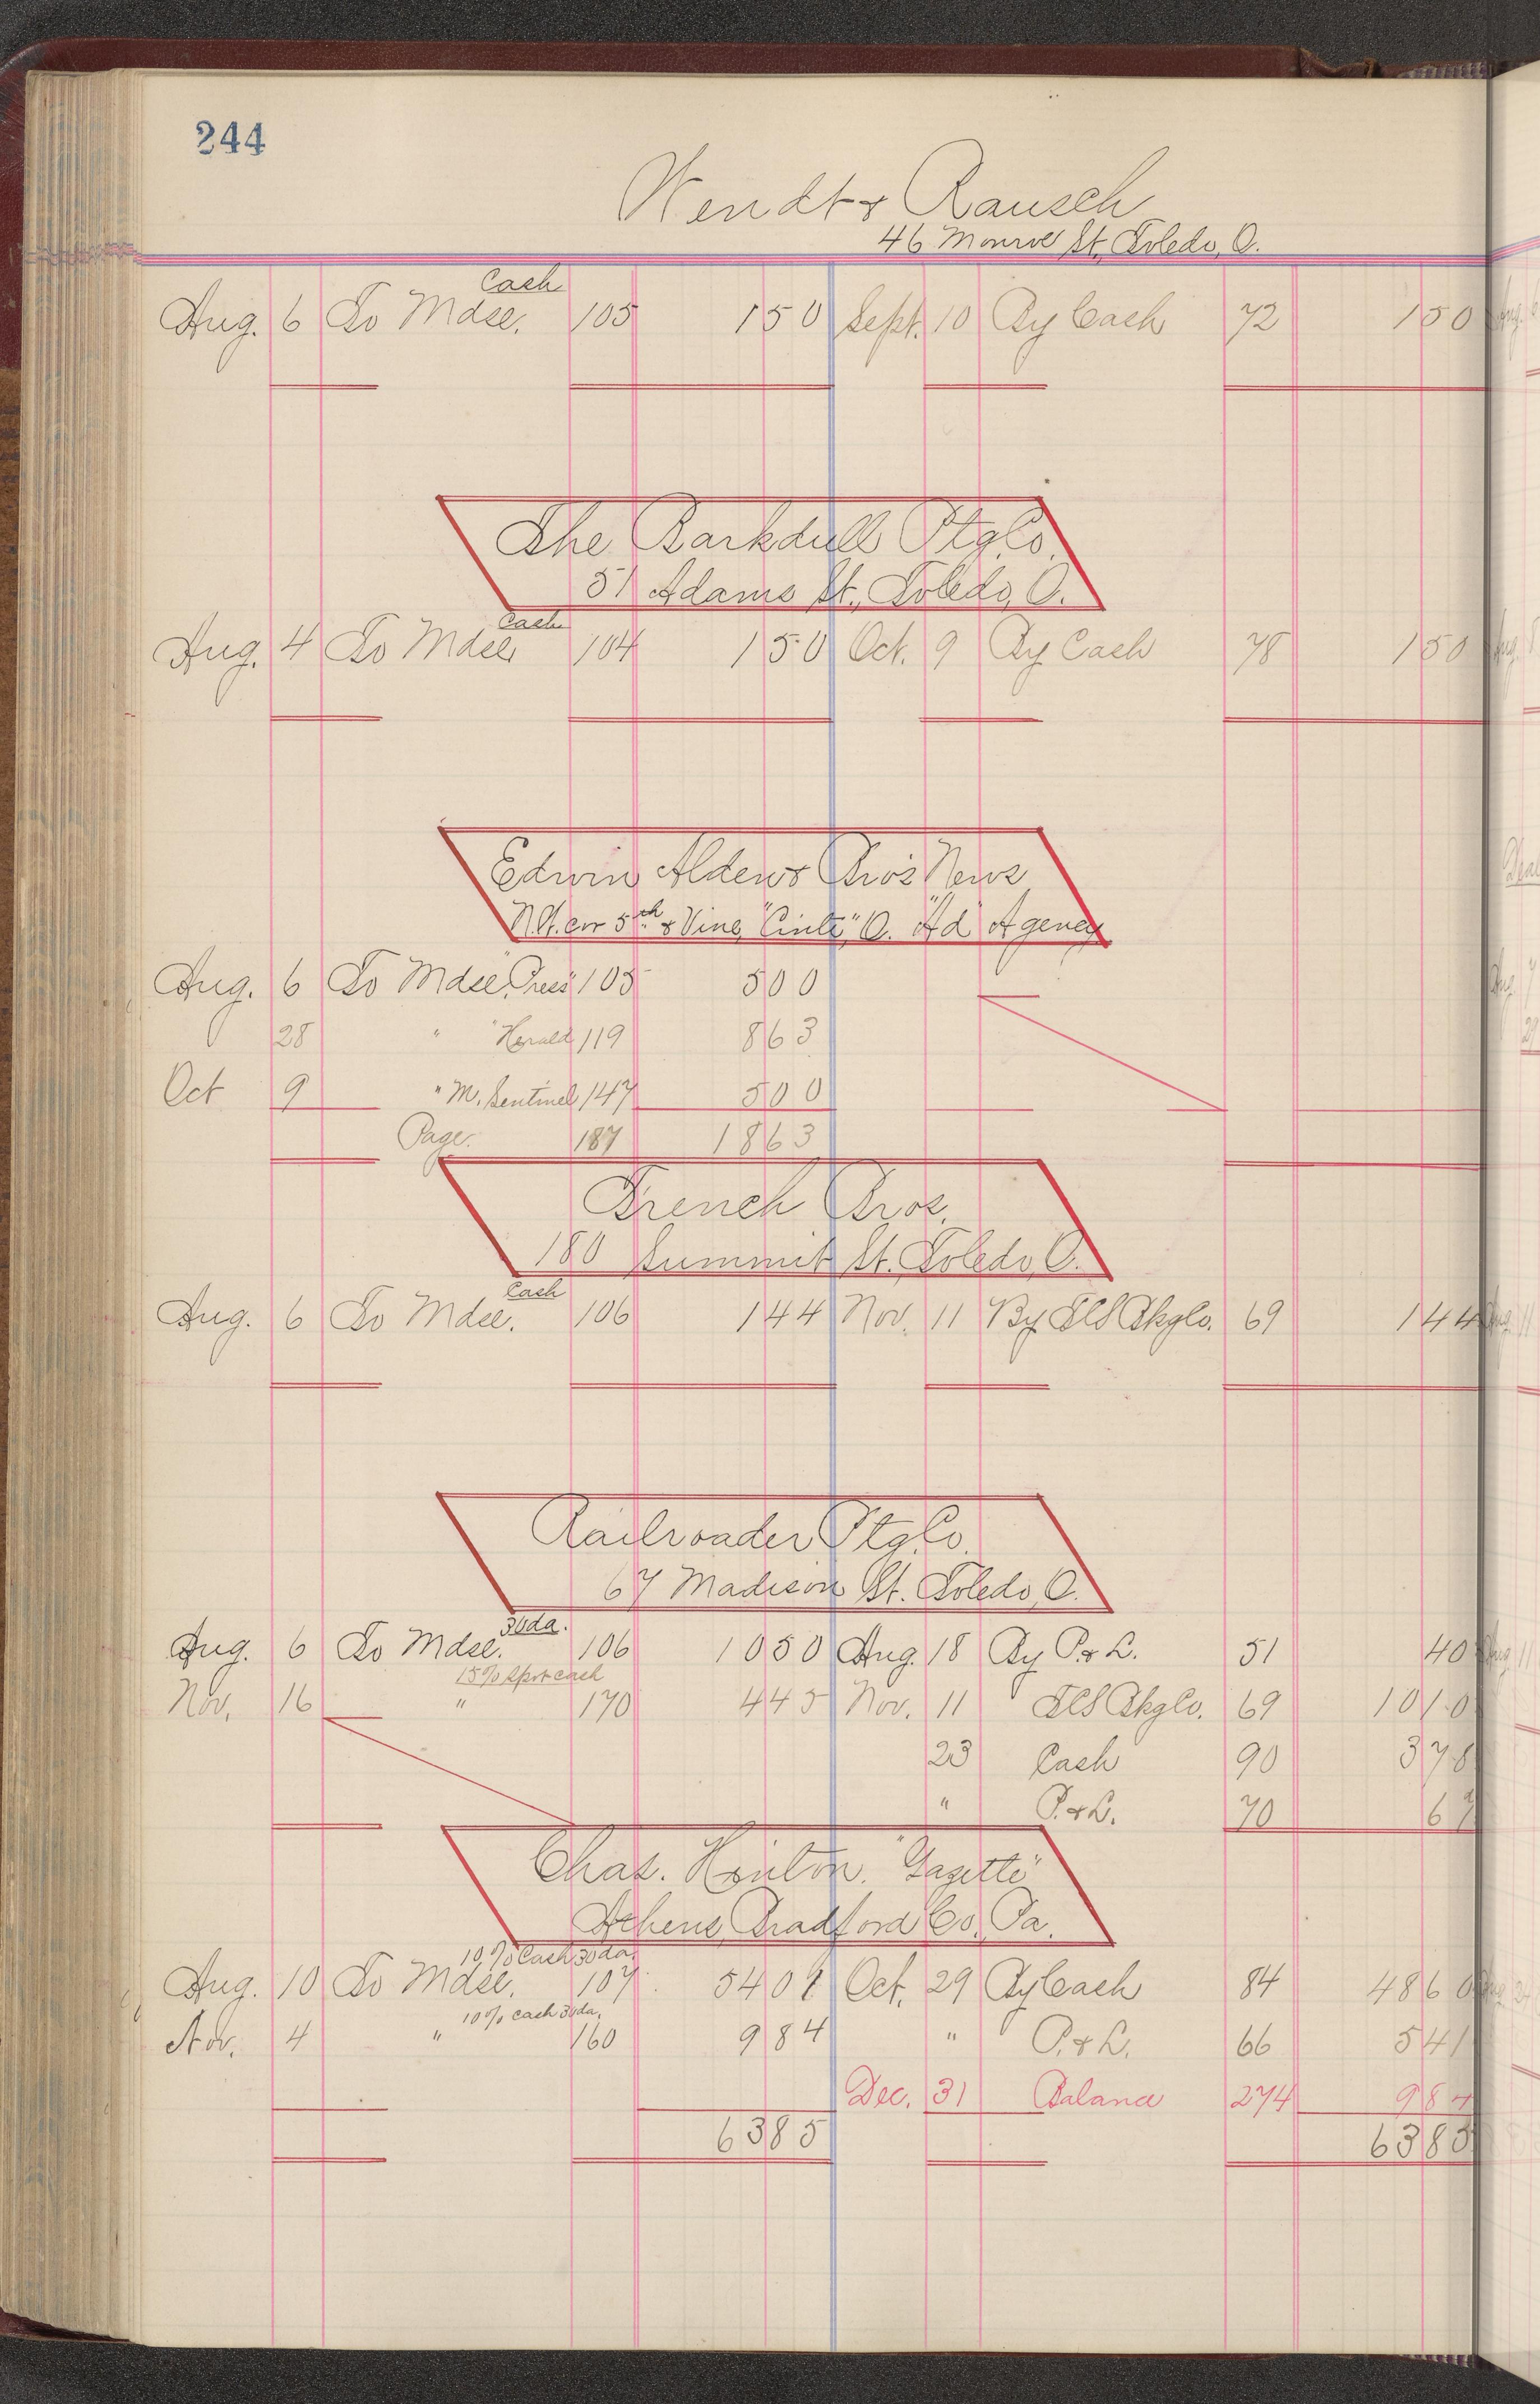 244
Wendt & Rausch
46 Monroe St., Toledo, O.
Cash
Aug. 6 To Mdse. 105 150 Sept. 10 By Cash 72 150
The Barkdull Ptg. Co.
51 Adams St., Toledo, O.
Cash
Aug. 4 To Mdse. 104 150 Oct. 9 By Cash 78 150
Edwin Alden & Bro's News
N.W. cor 5th & Vine, "Cinti", O. "Ad" Agency
Aug. 6 To Mdse. "Press" 105 500
28 " "Herald 119 863
Oct 9 " M. Sentinel 147 500
Page. 187 1863
French Bros.
180 Summit St. Toledo, O.
Cash
Aug. 6 To Mdse. 106 144 Nov. 11 By Bkg Co. 69 144
Railroader Ptg. Co.
67 Madison St. Toledo, O.
30 da.
Aug. 6 To Mdse. 106 1050 Aug. 18 By P. & L. 51 40
15% Spot cash
Nov. 16 " 170 445 Nov. 11 Bkg Co. 69 1010
23 Cash 90 378
" P. & L. 70 67
Chas. Hinton. "Gazette"
Athens, Bradford Co., Pa.
10% Cash 30 da.
Aug. 10 To Mdse. 107 5401 Oct. 29 By Cash 84 4860
10% cash 30 da.
Nov. 4 " 160 984 " P. & L. 66 541
Dec. 31 Balance 274 984
6385 6385